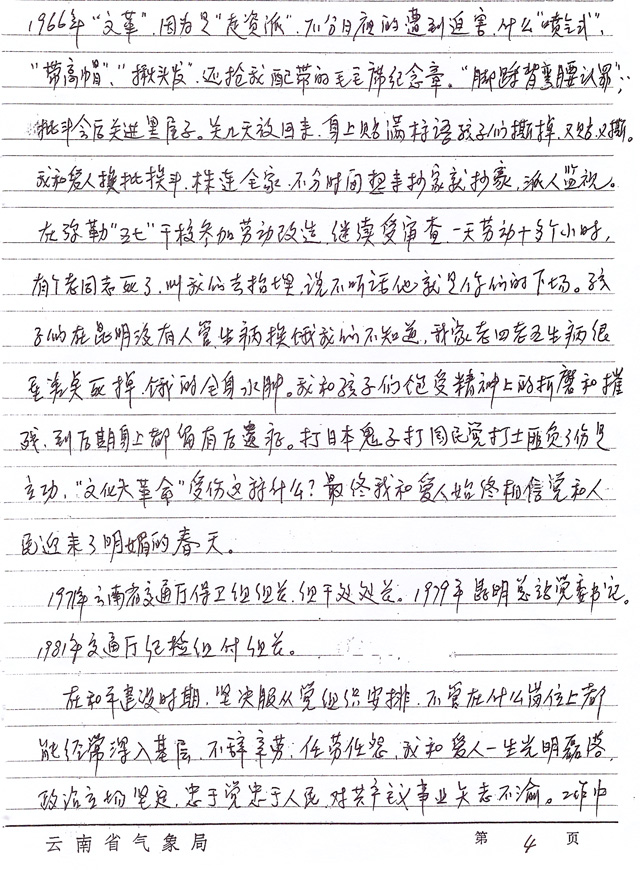 1966年“文革”，因为是“走资派”，不分日夜的遭到迫害，什么“喷气式”，
“带高帽”、“揪头发”，还抢我配带的毛主席纪念章。“脚踩背弯腰认罪”；
批斗会后关进黑屋子。关几天放回来，身上贴满标语孩子们撕掉，又贴又撕。
我和爱人挨批挨斗，株连全家，不分时间想来抄家就抄家，派人监视。
在弥勒“五七”干校参加劳动改造，继续受审查，一天劳动十多个小时，
有个老同志死了，叫我们去抬埋，说不听话他就是你们的下场。孩
子们在昆明没有人管，生病挨饿我们不知道，我家老四老五生病很
重差点死掉，饿的全身水肿。我和孩子们饱受精神上的折磨和摧
残，到后期身上都留有后遗症。打日本鬼子打国民党打土匪负了伤是
立功，“文化大革命”受伤这算什么？最终我和爱人始终相信党和人
民迎来了明媚的春天。
1971年云南省交通厅保卫组组长、组干处处长。1979年昆明总站党委书记。
1981年交通厅纪检组付组长。
在和平建设时期，坚决服从党组织安排，不管在什么岗位上都
能经常深入基层，不辞辛劳，任劳任怨，我和爱人一生光明磊落，
政治立场坚定，忠于党忠于人民，对共产主义事业矢志不渝。工作中
云南省气象局 第 4 页